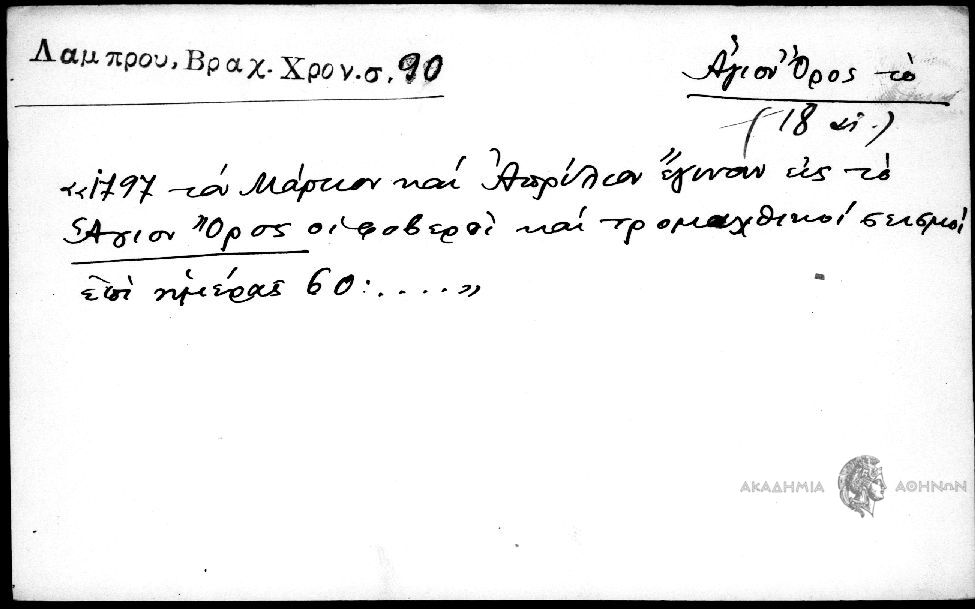 Λαμπρου, Βραχ. Χρον. σ. 90
Ἅγιον Ὄρος τὸ
(18 αἰ.)
«1797 τὸν Μάρτιον καί Ἀπρίλιον ἔγιναν εἰς τὸ
Ἅγιον Ὄρος οἱ φοβεροὶ καί τρομαχθικοί σεισμοί
ἐπὶ ἡμέρας 60: . . . . »
ΑΚΑΔΗΜΙΑ ΑΘΗΝΩΝ